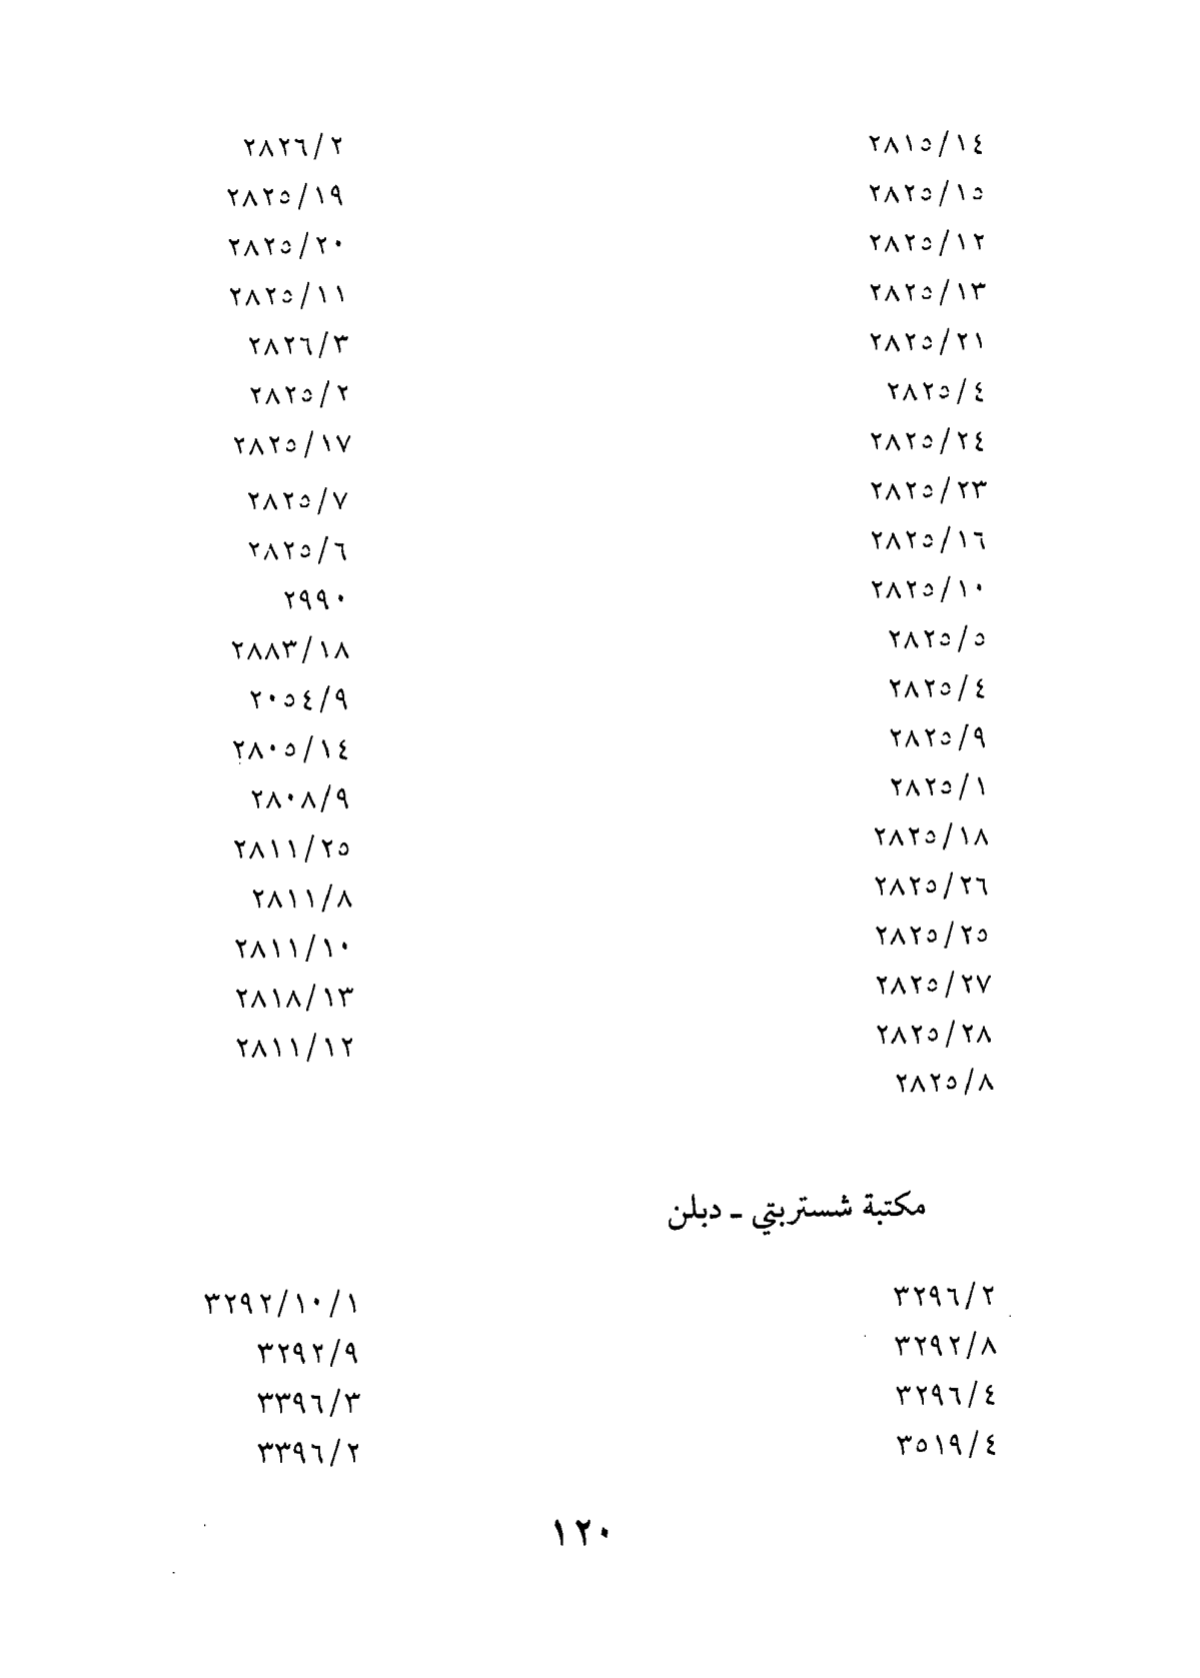 ٢٨١٥/١٤
٢٨٢٥/١٥
٢٨٢٥/١٢
٢٨٢٥/١٣
٢٨٢٥/٢١
٢٨٢٥/٤
٢٨٢٥/٢٤
٢٨٢٥/٢٣
٢٨٢٥/١٦
٢٨٢٥/١٠
٢٨٢٥/٥
٢٨٢٥/٤
٢٨٢٥/٩
٢٨٢٥/١
٢٨٢٥/١٨
٢٨٢٥/٢٦
٢٨٢٥/٢٥
٢٨٢٥/٢٧
٢٨٢٥/٢٨
٢٨٢٥/٨
٢٨٢٦/٢
٢٨٢٥/١٩
٢٨٢٥/٢٠
٢٨٢٥/١١
٢٨٢٦/٣
٢٨٢٥/٢
٢٨٢٥/١٧
٢٨٢٥/٧
٢٨٢٥/٦
٢٩٩٠
٢٨٨٣/١٨
٢٠٥٤/٩
٢٨٠٥/١٤
٢٨٠٨/٩
٢٨١١/٢٥
٢٨١١/٨
٢٨١١/١٠
٢٨١٨/١٣
٢٨١١/١٢
مكتبة شستربتي ـ دبلن
٣٢٩٦/٢
٣٢٩٢/٨
٣٢٩٦/٤
٣٥١٩/٤
٣٢٩٢/١٠/١
٣٢٩٢/٩
٣٣٩٦/٣
٣٣٩٦/٢
١٢٠